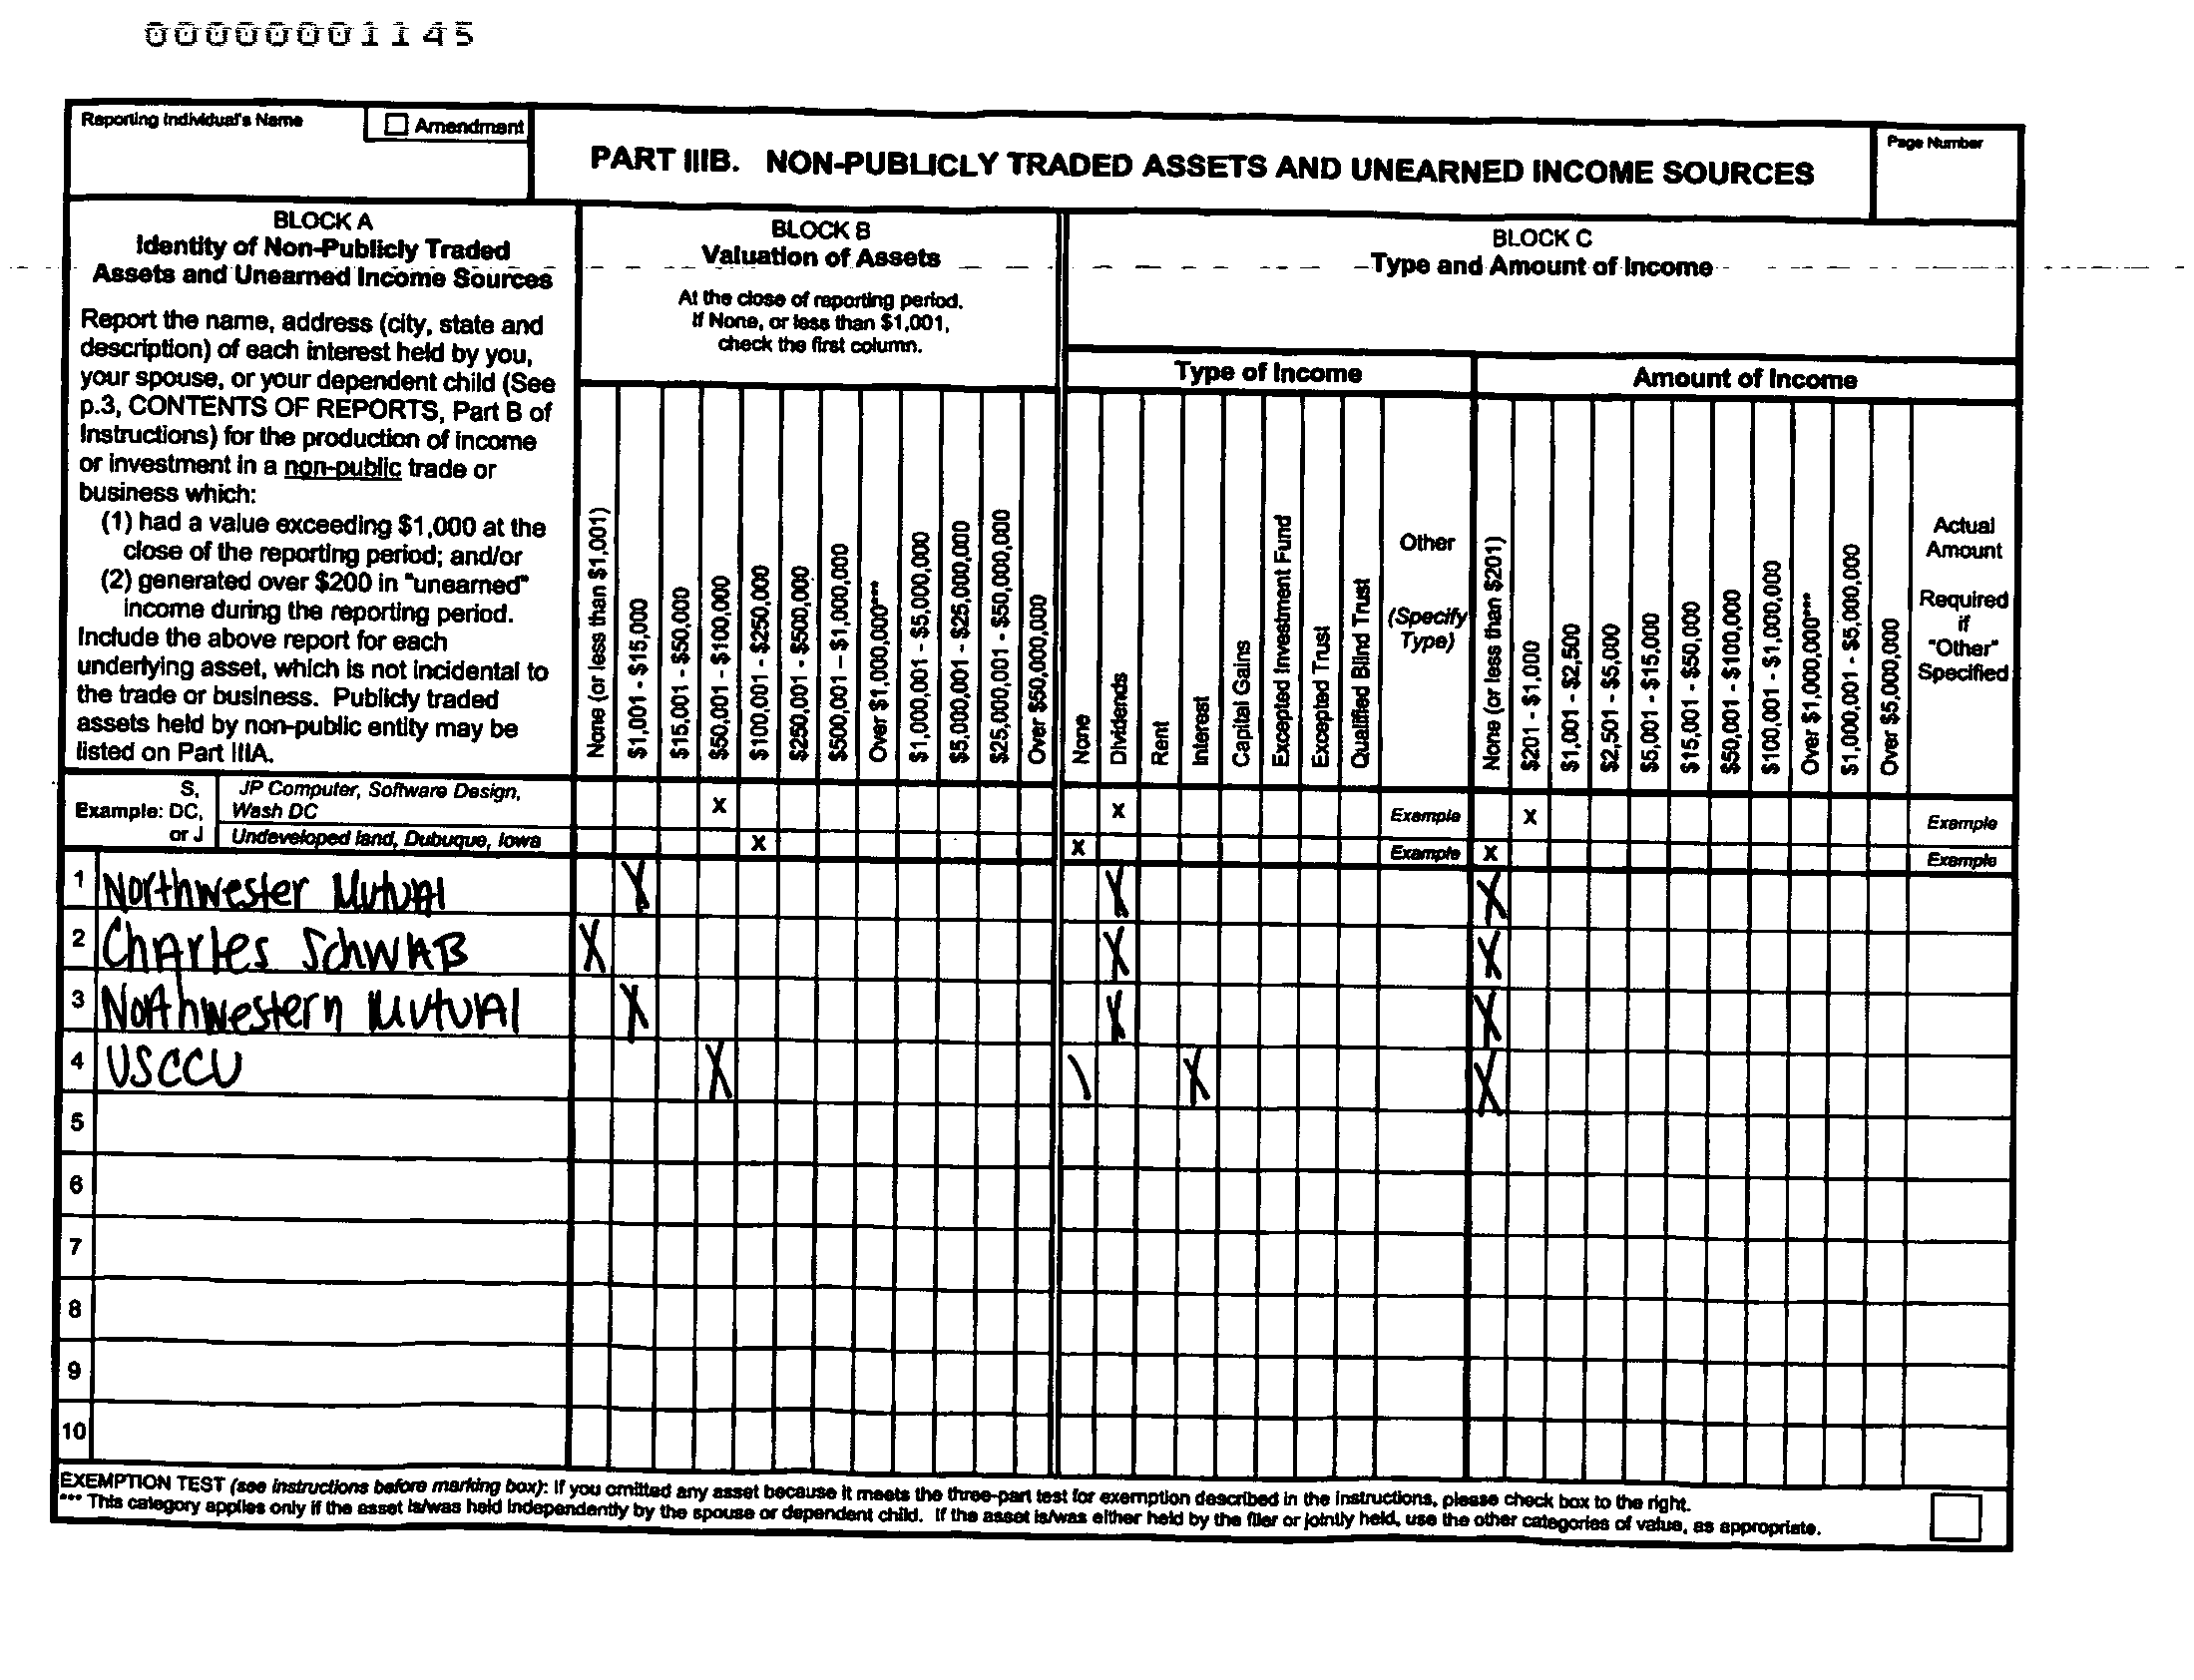 00000001145
Reporting Individual's Name
Amendment
PART IIIB. NON-PUBLICLY TRADED ASSETS AND UNEARNED INCOME SOURCES
Page Number
BLOCK A
Identity of Non-Publicly Traded
Assets and Unearned Income Sources
Report the name, address (city, state and
description) of each interest held by you,
your spouse, or your dependent child (See
p.3, CONTENTS OF REPORTS, Part B of
Instructions) for the production of income
or investment in a non-public trade or
business which:
(1) had a value exceeding $1,000 at the
close of the reporting period; and/or
(2) generated over $200 in "unearned"
income during the reporting period.
Include the above report for each
underlying asset, which is not incidental to
the trade or business. Publicly traded
assets held by non-public entity may be
listed on Part IIIA.
BLOCK B
Valuation of Assets
At the close of reporting period.
If None, or less than $1,001,
check the first column.
None (or less than $1,001)
$1,001 - $15,000
$15,001 - $50,000
$50,001 - $100,000
$100,001 - $250,000
$250,001 - $500,000
$500,001 – $1,000,000
Over $1,000,000***
$1,000,001 - $5,000,000
$5,000,001 - $25,000,000
$25,000,001 - $50,000,000
Over $50,000,000
BLOCK C
Type and Amount of Income
Type of Income
None
Dividends
Rent
Interest
Capital Gains
Excepted Investment Fund
Excepted Trust
Qualified Blind Trust
Other
(Specify
Type)
Amount of Income
None (or less than $201)
$201 - $1,000
$1,001 - $2,500
$2,501 - $5,000
$5,001 - $15,000
$15,001 - $50,000
$50,001 - $100,000
$100,001 - $1,000,000
Over $1,000,000***
$1,000,001 - $5,000,000
Over $5,000,000
Actual
Amount
Required
if
"Other"
Specified
S,
Example: DC,
or J
JP Computer, Software Design,
Wash DC
X X Example X Example
Undeveloped land, Dubuque, Iowa X X Example X Example
1 Northwester Mutual X X X
2 Charles Schwab X X X
3 Northwestern Mutual X X X
4 USCCU X \ X X
5
6
7
8
9
10
EXEMPTION TEST (see instructions before marking box): If you omitted any asset because it meets the three-part test for exemption described in the instructions, please check box to the right.
*** This category applies only if the asset is/was held independently by the spouse or dependent child. If the asset is/was either held by the filer or jointly held, use the other categories of value, as appropriate.